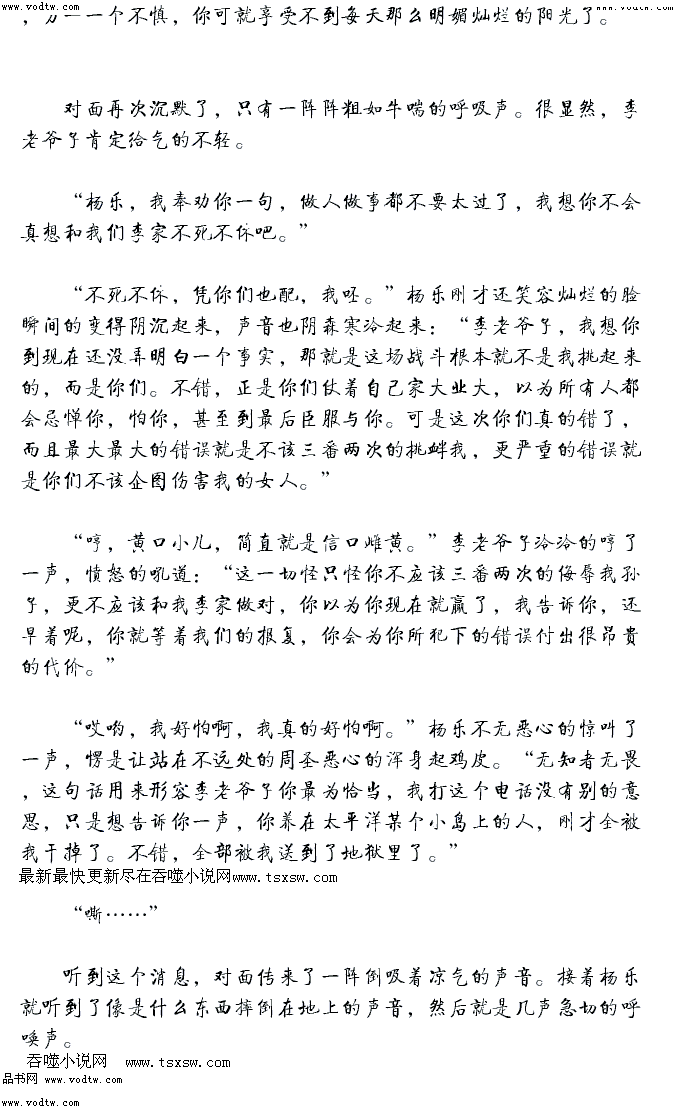 www.vodtw.com www.vodtw.com
，万一一个不慎，你可就享受不到每天那么明媚灿烂的阳光了。
对面再次沉默了，只有一阵阵粗如牛喘的呼吸声。很显然，李
老爷子肯定给气的不轻。
“杨乐，我奉劝你一句，做人做事都不要太过了，我想你不会
真想和我们李家不死不休吧。”
“不死不休，凭你们也配，我呸。”杨乐刚才还笑容灿烂的脸
瞬间的变得阴沉起来，声音也阴森寒冷起来：“李老爷子，我想你
到现在还没弄明白一个事实，那就是这场战斗根本就不是我挑起来
的，而是你们。不错，正是你们仗着自己家大业大，以为所有人都
会忌惮你，怕你，甚至到最后臣服与你。可是这次你们真的错了，
而且最大最大的错误就是不该三番两次的挑衅我，更严重的错误就
是你们不该企图伤害我的女人。”
“哼，黄口小儿，简直就是信口雌黄。”李老爷子冷冷的哼了
一声，愤怒的吼道：“这一切怪只怪你不应该三番两次的侮辱我孙
子，更不应该和我李家做对，你以为你现在就赢了，我告诉你，还
早着呢，你就等着我们的报复，你会为你所犯下的错误付出很昂贵
的代价。”
“哎哟，我好怕啊，我真的好怕啊。”杨乐不无恶心的惊叫了
一声，愣是让站在不远处的周圣恶心的浑身起鸡皮。“无知者无畏
，这句话用来形容李老爷子你最为恰当，我打这个电话没有别的意
思，只是想告诉你一声，你养在太平洋某个小岛上的人，刚才全被
我干掉了。不错，全部被我送到了地狱里了。”
最新最快更新尽在吞噬小说网www.tsxsw.com
“嘶……”
听到这个消息，对面传来了一阵倒吸着凉气的声音。接着杨乐
就听到了像是什么东西摔倒在地上的声音，然后就是几声急切的呼
唤声。
吞噬小说网 www.tsxsw.com
品书网 www.vodtw.com
www.vodtw.com